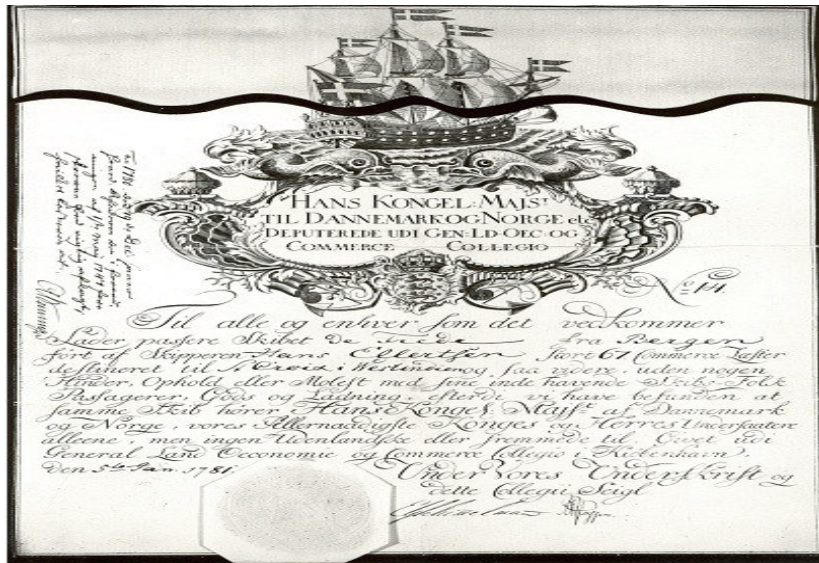 HANS KONGEL: MAJS.T
TIL DANNEMARK OG NORGE etc
DEPUTEREDE UDI GEN: LD-OEC-OG
COMMERCE COLLEGIO
No 14.
Til alle og enhver som det vedkommer
Lader passere Skibet de Frede fra Bergen
ført af Skipperen Hans Ellertsen Stort 67 Commerce Læster
destineret til St Croix i Westindien og saa videre, uden nogen
Hinder, Ophold eller Molest med sine inde havende Skibs-Folk
Passagerer, Gods og Ladning, efterdi vi have befunden at
samme Skib hører Hans Konges Majst. af Dannemark
og Norge, vores Allernaadigste Konges og Herres Undersaatere
alleene, men ingen Udenlandske eller fremmede til, Givet udi
General Land Oeconomie og Commerce Collegio i Kiöbenhavn.
den 5te Jan. 1781.
Under Vores Underskrift og
dette Collegii Seigl